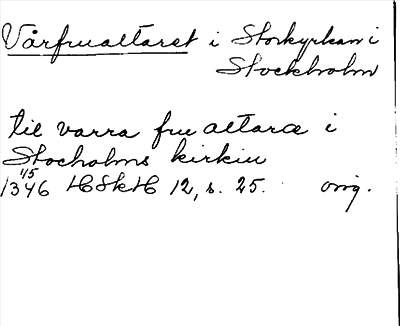 Vårfrualtaret i Storkyrkan i
Stockholm
til varra fru altara i
Stocholms kirkiu
1/5
1346 HSkH 12, s. 25. orig.